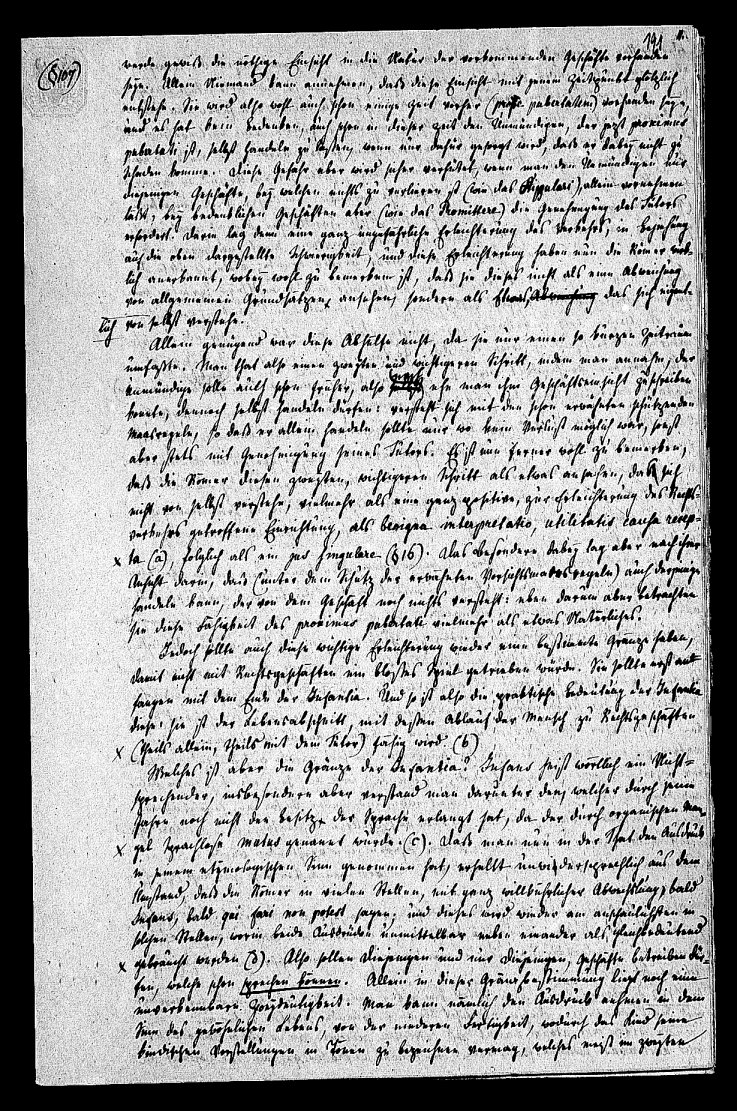 191
(§107)
werde gewiß die nöthige Einsicht in die Natur der vorkommenden Geschäfte vorhanden
seyn. Allein Niemand kann annehmen, daß diese Einsicht mit jenem Zeitpunkt plötzlich
entstehe. Sie wird also wohl auch schon einige Zeit vorher (prope pubertatem) vorhanden seyn,
und es hat kein Bedenken, auch schon in dieser Zeit den Unmündigen, der jetzt proximus
pubertati ist, selbst handeln zu lassen, wenn nur dafür gesorgt wird, daß er dabey nicht zu
Schaden komme. Diese Gefahr aber wird sicher verhütet, wenn man den Unmündigen nur
diejenigen Geschäfte, bey welchen nichts zu verlieren ist (wie das Stipulari), allein vornehmen
läßt, bey bedenklichen Geschäften aber (wie das Promittere) die Genehmigung des Tutors
erfordert. Darin lag denn eine ganz ungefährliche Erleichterung des Verkehrs, in Beziehung
auf die oben dargestellte Schwierigkeit, und diese Erleichterung haben nun die Römer wirk-
lich anerkannt, wobey wohl zu bemerken ist, daß sie dieses nicht als eine Abweichung
von allgemeinen Grundsätzen ansehen, sondern als Etwas, das sich eigent-
lich von selbst verstehe.
Allein genügend war diese Abhülfe nicht, da sie nur einen so kurzen Zeitraum
umfaßte. Man that also einen zweyten und wichtigeren Schritt, indem man annahm, der
Unmündige solle auch schon früher, also ehe man ihm Geschäftseinsicht zuschreiben
konnte, dennoch selbst handeln dürfen: versteht sich mit den schon erwähnten schützenden
Maasregeln, so daß er allein handeln sollte nur wo kein Verlust möglich war, sonst
aber stets mit Genehmigung seines Tutors. Es ist nun ferner wohl zu bemerken,
daß die Römer diesen zweyten, wichtigeren Schritt als etwas ansahen, das sich
nicht von selbst verstehe, vielmehr als eine ganz positive, zur Erleichterung des Rechts-
verkehrs getroffene Einrichtung, als benigna interpretatio, utilitatis causa recep-
x ta (a), folglich als ein jus singulare (§ 16). Das Besondere dabey lag aber nach ihrer
Ansicht darin, daß (unter dem Schutz der erwähnten Vorsichtsmaasregeln) auch derjenige
handeln kann, der von dem Geschäft noch nichts versteht: eben darum aber betrachten
sie diese Fähigkeit des proximus pubertati vielmehr als etwas Natürliches.
Jedoch sollte auch diese wichtige Erleichterung wieder eine bestimmte Gränze haben,
damit nicht mit Rechtsgeschäften ein bloßes Spiel getrieben würde. Sie sollte erst an-
fangen mit dem Ende der Infantia. Und so ist also die praktische Bedeutung der Infantia
diese: sie ist der Lebensabschnitt, mit dessen Ablauf der Mensch zu Rechtsgeschäften
x (theils allein, theils mit dem Tutor) fähig wird (b)
Welches ist aber die Gränze der Infantia? Infans heißt wörtlich ein Nicht-
sprechender, insbesondere aber verstand man darunter den, welcher durch seine
Jahre noch nicht den Besitz der Sprache erlangt hat, da der durch organischen Man-
x gel Sprachlose mutus genannt wurde (c). Daß man nun in der That den Ausdruck
in jenem etymologischen Sinn genommen hat, erhellt unwidersprechlich aus dem
Umstand, daß die Römer in vielen Stellen, mit ganz willkührlicher Abwechslung, bald
Infans, bald qui fari non potest sagen; und dieses wird wieder am anschaulichsten in
solchen Stellen, worin beide Ausdrücke unmittelbar neben einander als gleichbedeutend
x gebraucht werden (d). Also sollen Diejenigen und nur Diejenigen, Geschäfte betreiben dür-
fen, welche schon sprechen können. Allein in dieser Gränzbestimmung liegt noch eine
unverkennbare Zweydeutigkeit. Man kann nämlich den Ausdruck nehmen in dem
Sinn des gewöhnlichen Lebens, von der niederen Fertigkeit, wodurch das Kind seine
kindischen Vorstellungen in Tönen zu bezeichnen vermag, welches meist im zweyten